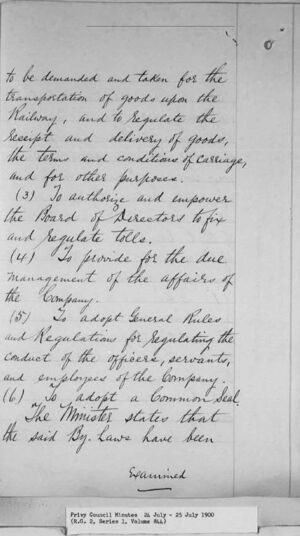 to be demanded and taken for the
transportation of goods upon the
Railway, and to regulate the
receipt and delivery of goods,
the terms and conditions of carriage,
and for other purposes.
(3) To authorize and empower
the Board of Directors to fix
and regulate tolls.
(4) To provide for the due
management of the affairs of
the Company.
(5) To adopt General Rules
and Regulations for regulating the
conduct of the officers, servants,
and employees of the Company.
(6) To adopt a Common Seal.
The Minister states that
the said By-Laws have been
Examined
Privy Council Minutes 24 July - 25 July 1900
(R.G. 2, Series 1, Volume 844)